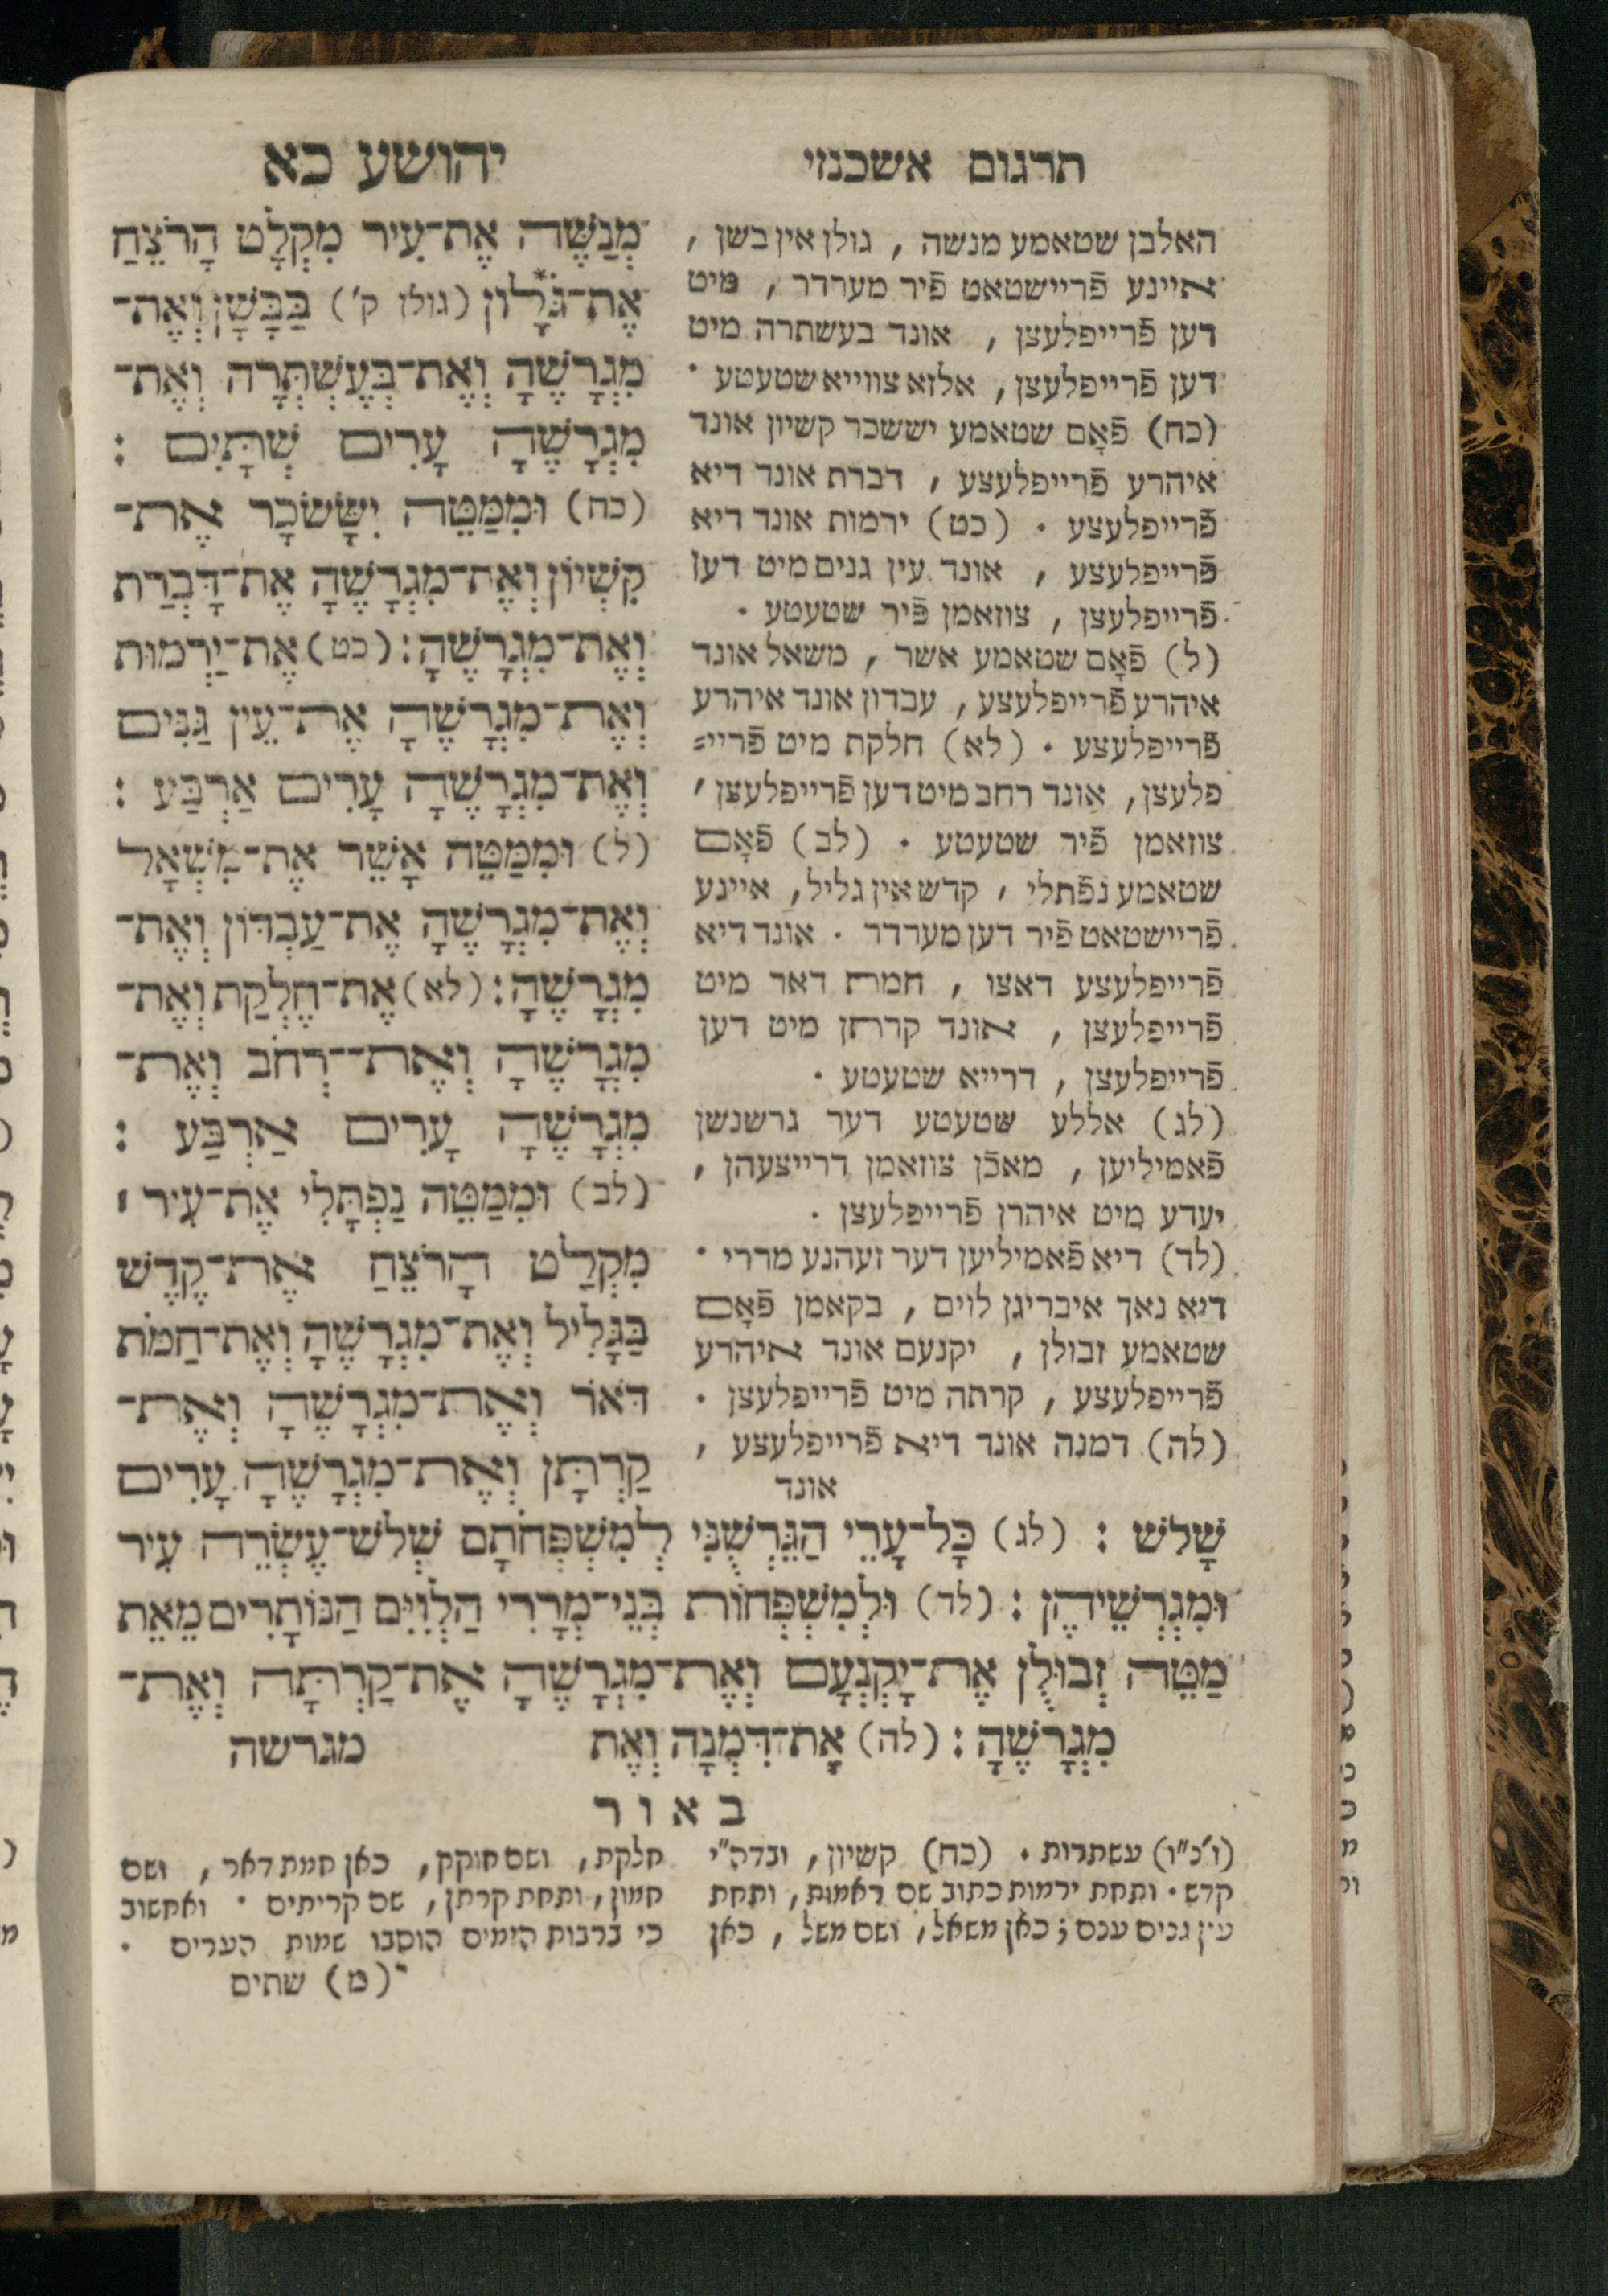 תרגום אשכנזי
יהושע כא
האלבן שטאמע מנשה , גולן אין בשן ,
איינע פֿריישטאט פֿיר מערדר , מיט
דען פֿרייפלעצן , אונד בעשתרה מיט
דען פֿרייפלעצן , אלזא צווייא שטעטע ·
(כח) פֿאָם שטאמע יששכר קשיון אונד
איהרע פֿרייפלעצע , דברת אונד דיא
פֿרייפלעצע · (כט) ירמות אונד דיא
פֿרייפלעצע , אונד עין גנים מיט דען
פֿרייפלעצן , צוזאמן פֿיר שטעטע ·
(ל) פֿאָם שטאמע אשר , משאל אונד
איהרע פֿרייפלעצע , עבדון אונד איהרע
פֿרייפלעצע · (לא) חלקת מיט פֿריי=
פלעצן , אונד רחב מיט דען פֿרייפלעצן ,
צוזאמן פֿיר שטעטע · (לב) פֿאָם
שטאמע נפֿתלי , קדש אין גליל , איינע
פֿריישטאט פֿיר דען מערדר · אונד דיא
פֿרייפלעצע דאצו , חמת דאר מיט
פֿרייפלעצן , אונד קרתן מיט דען
פֿרייפלעצן , דרייא שטעטע ·
(לג) אללע שטעטע דער גרשנשן
פֿאמיליען , מאכֿן צוזאמן דרייצעהן ,
יעדע מיט איהרן פֿרייפלעצן ·
(לד) דיא פֿאמיליען דער זעהנע מררי ·
דיא נאך איבריגן לוים , בקאמן פֿאָם
שטאמע זבולן , יקנעם אונד איהרע
פֿרייפלעצע , קרתה מיט פֿרייפלעצן ·
(לה) דמנה אונד דיא פֿרייפלעצע ,
אונד
מְנַשֶּׁה אֶת־עִיר מִקְלָט הָרֹצֵחַ
אֶת־גֹּלָוֹן* (גולן ק') בַּבָּשָׁן וְאֶת־
מִגְרָשֶׁהָ וְאֶת־בְּעֶשְׁתְּרָה וְאֶת־
מִגְרָשֶׁהָ עָרִים שְׁתָּיִם :
(כח) וּמִמַּטֵּה יִשָּׂשכָר אֶת־
קִשְׁיוֹן וְאֶת־מִגְרָשֶׁהָ אֶת־דָּבְרַת
וְאֶת־מִגְרָשֶׁהָ : (כט) אֶת־יַרְמוּת
וְאֶת־מִגְרָשֶׁהָ אֶת־עֵין גַּנִּים
וְאֶת־מִגְרָשֶׁהָ עָרִים אַרְבַּע :
(ל) וּמִמַּטֵּה אָשֵׁר אֶת־מִשְׁאָל
וְאֶת־מִגְרָשֶׁהָ אֶת־עַבְדּוֹן וְאֶת־
מִגְרָשֶׁהָ : (לא) אֶת־חֶלְקַת וְאֶת־
מִגְרָשֶׁהָ וְאֶת־רְחֹב וְאֶת־
מִגְרָשֶׁהָ עָרִים אַרְבַּע :
(לב) וּמִמַּטֵּה נַפְתָּלִי אֶת־עִיר ׀
מִקְלַט הָרֹצֵחַ אֶת־קֶדֶשׁ
בַּגָּלִיל וְאֶת־מִגְרָשֶׁהָ וְאֶת־חַמֹּת
דֹּאר וְאֶת־מִגְרָשֶׁהָ וְאֶת־
קַרְתָּן וְאֶת־מִגְרָשֶׁהָ עָרִים
שָׁלשׁ : (לג) כָּל־עָרֵי הַגֵּרְשֻׁנִּי לְמִשְׁפְּחֹתָם שְׁלשׁ־עֶשְׂרֵה עִיר
וּמִגְרְשֵׁיהֶן : (לד) וּלְמִשְׁפְּחוֹת בְּנֵי־מְרָרִי הַלְוִיִּם הַנּוֹתָרִים מֵאֵת
מַטֵּה זְבוּלֻן אֶת־יָקְנְעָם וְאֶת־מִגְרָשֶׁהָ אֶת־קַרְתָּה וְאֶת־
מִגְרָשֶׁהָ : (לה) אֶת־דִּמְנָה וְאֶת
מגרשה
באור
(ו'כ"ו) עשתרות · (כח) קשיון , ובדה"י
קדש · ותחת ירמות כתוב שם ראמות , ותחת
עין גנים ענם ; כאן משאל , ושם משל , כאן
חלקת , ושם חוקק , כאן חמת דאר , ושם
חמון , ותחת קרתן , שם קריתים · ואחשוב
כי ברבות הימים הוסבו שמות הערים ·
(מ) שתים